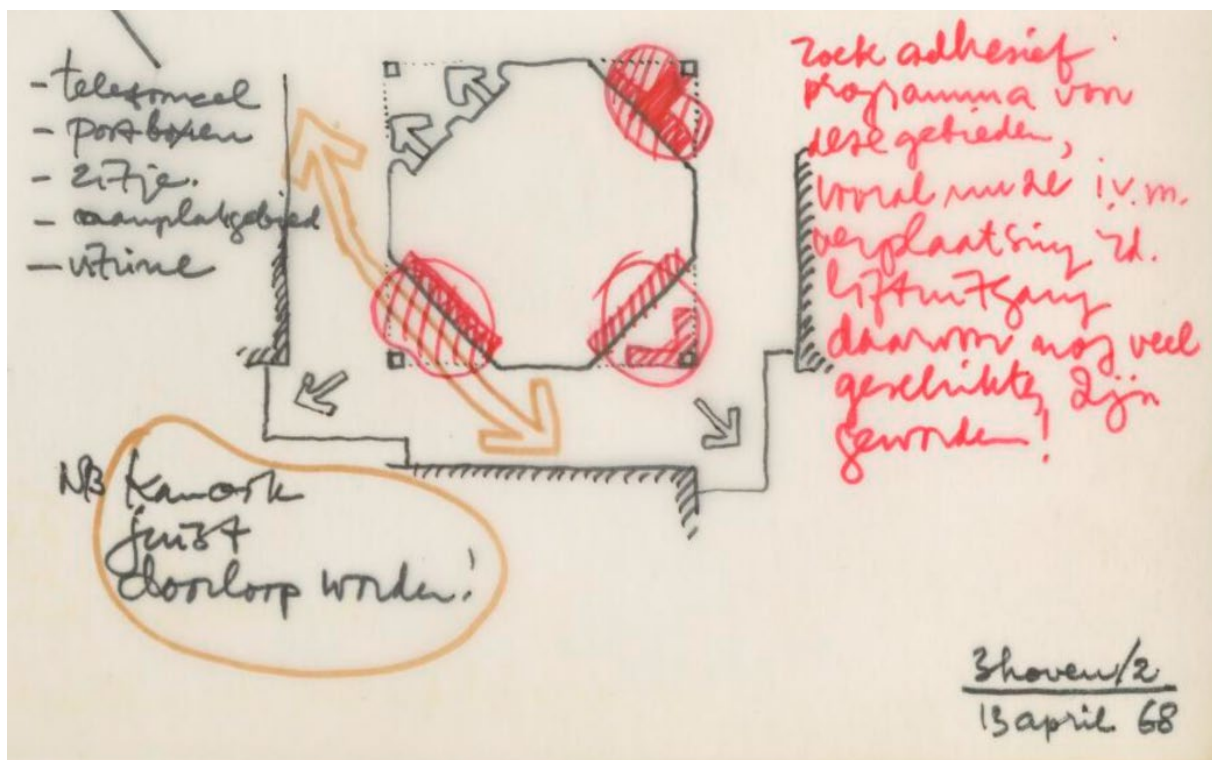 - telefooncel
- postboxen
- zitje.
- aanplakgebied
- vitrine
zoek adhesief
programma voor
deze gebieden,
vooral nu ze i.v.m.
verplaatsing v.d.
liftuitgang
daarvoor nog veel
geschikter zijn
geworden!
NB Kan ook
juist
doorloop worden!
3hoven/2
13 april 68